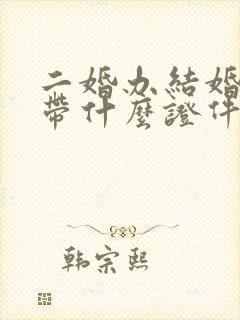 二婚办结婚
带什麼證件
韩宗熙